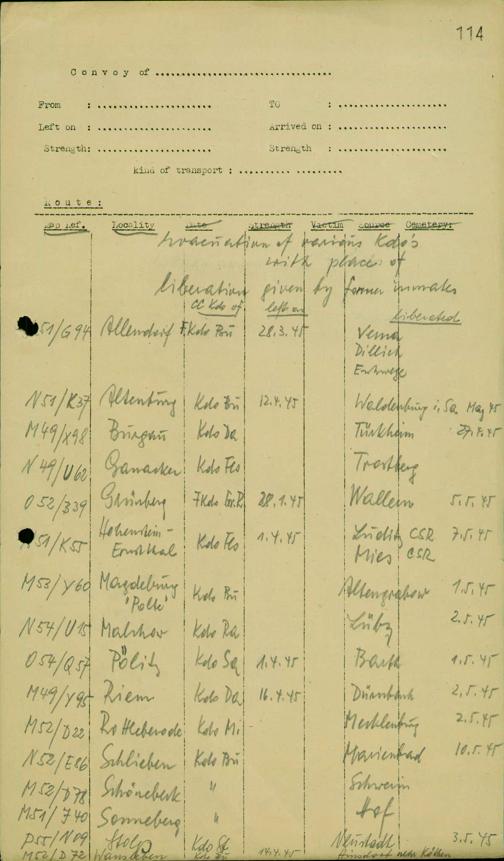 114
Convoy of ................................
From : ..................... TO : .....................
Left on : ..................... Arrived on : .....................
Strength: ..................... Strength : .....................
kind of transport : .......... .........
Route:
Map Ref. Locality Date Strength Victim Source Cemetery:
Evacuation of various Kdo's
with places of
liberation given by former inmates
CC Kdo of. left on liberated
51/G94 Allendorf F.Kdo Bu 28.3.45 Verna
Dillich
N51/K37 Altenburg Kdo Bu 12.4.45 Waldenburg i. Sa. May 45
M49/X98 Burgau Kdo Da Türkheim 27.4.45
N49/U60 Ganacker Kdo Flo Trostberg
O52/B39 Grünberg FKdo Gr.R. 28.1.45 Wallern 5.5.45
51/K55 Hohenstein-
Ernstthal Kdo Flo 1.4.45 Luditz CSR 7.5.45
Mies CSR
M53/Y60 Magdeburg
'Polte' Kdo Bu Altengrabow 1.5.45
N54/U15 Malchow Kdo Ra Lübz 2.5.45
O54/Q57 Pölitz Kdo Sa 1.4.45 Barth 1.5.45
M49/Y95 Riem Kdo Da 16.4.45 Dürnbach 2.5.45
M52/D22 Rottleberode Kdo Mi. Mecklenburg 2.5.45
N52/E86 Schlieben Kdo Bu Marienbad 10.5.45
M52/D78 Schönebeck " Schwerin
M51/J40 Sonneberg " Hof
P55/N09 Stolp Kdo St. Neustadt 3.5.45
M52/D72 Wansleben Kdo Bu 14.4.45 Hinsdorf near Köthen